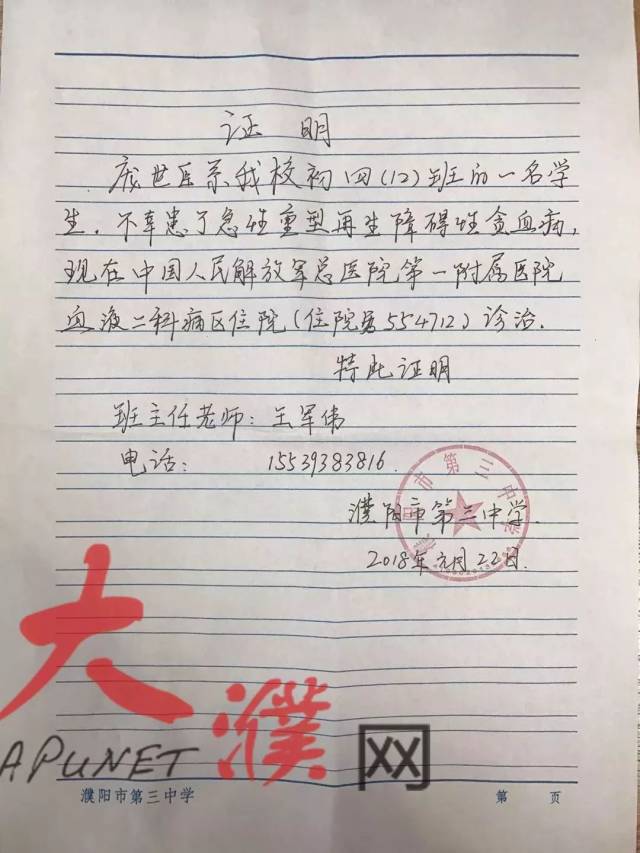 证 明
庞世臣系我校初四(12)班的一名学
生.不幸患了急性重型再生障碍性贫血病,
现在中国人民解放军总医院第一附属医院
血液二科病区住院(住院号554712)诊治.
特此证明
班主任老师:王军伟
电话: 15539383816.
市第三中学
濮阳市第三中学.
2018年元月22日.
大濮网
APUNET
濮阳市第三中学 第 页